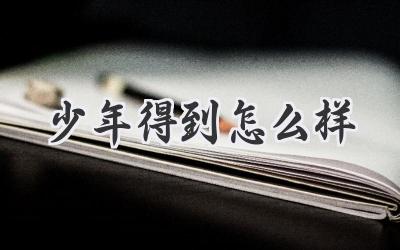 少年得到怎么样